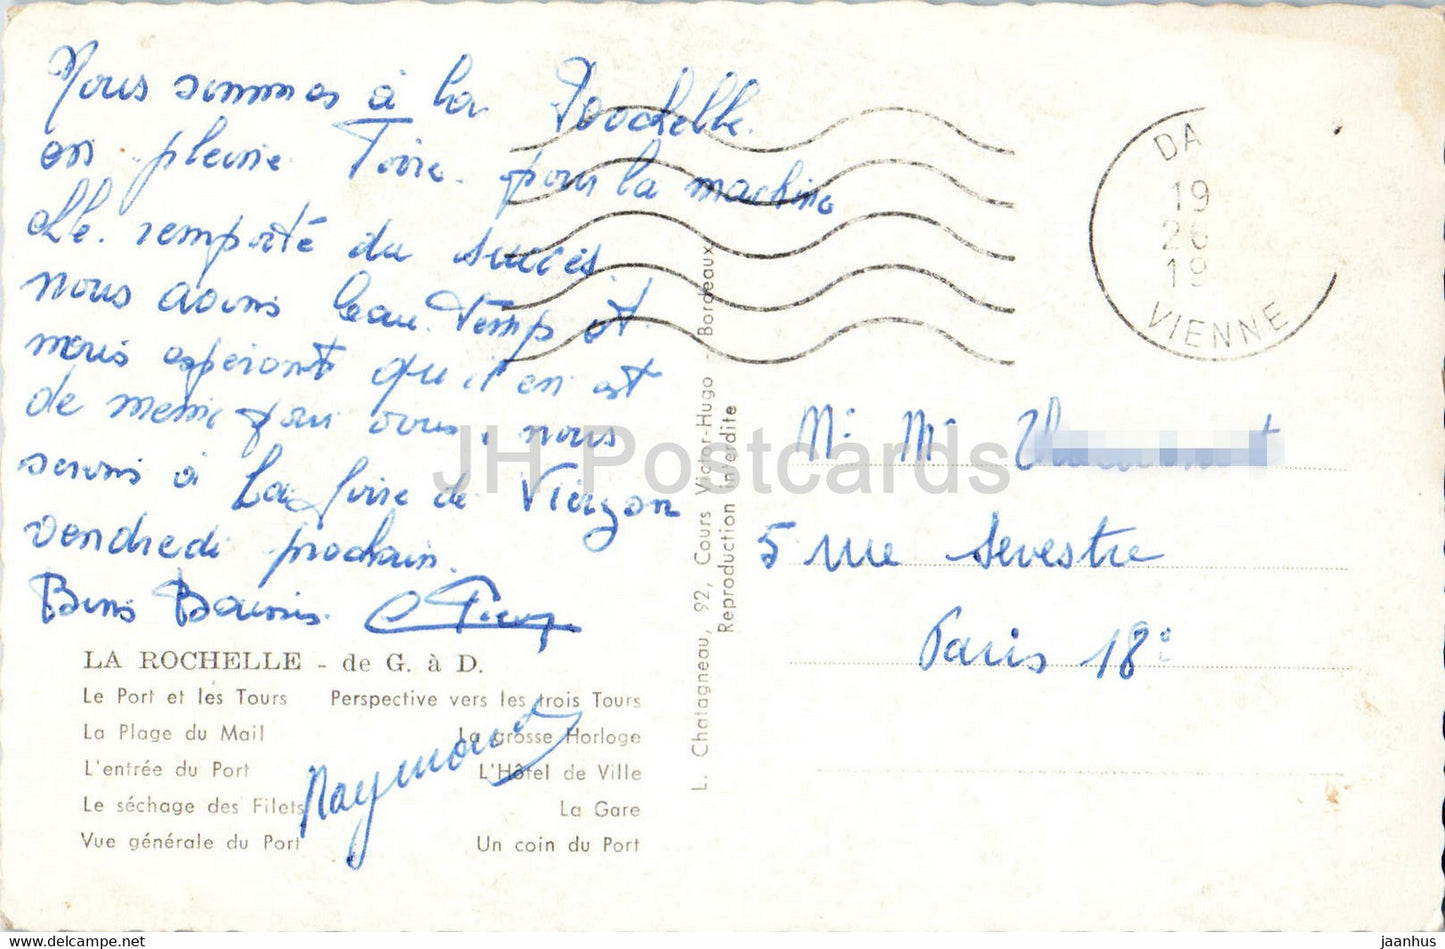 Nous sommes à la Rochelle
en pleine Foire pour la machine
elle remporte du succès.
nous avons beau temps et
nous espérons qu'il en est
de meme pour vous, nous
serons à La foire de Vierzon
vendredi prochain.
Bons Baisers.
Raymond
LA ROCHELLE - de G. à D.
Le Port et les Tours Perspective vers les trois Tours
La Plage du Mail La grosse Horloge
L'entrée du Port L'Hôtel de Ville
Le séchage des Filets La Gare
Vue générale du Port Un coin du Port
L. Chatagneau, 92, Cours Victor-Hugo - Bordeaux
Reproduction interdite
DA
19
26
19
VIENNE
M. Mme
5 rue Sevestre
Paris 18e
JH Postcards
hippostcard.com
jaanhus